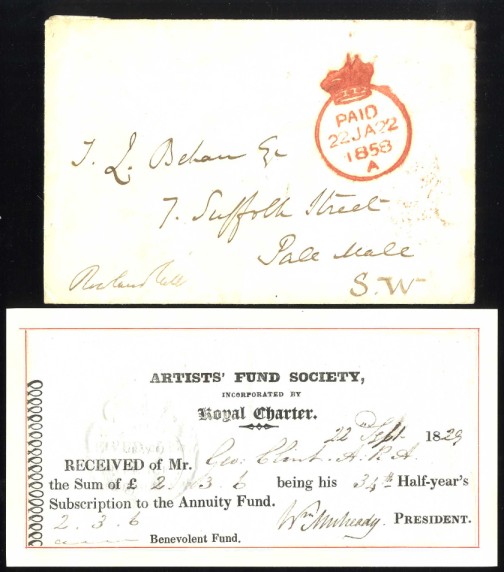 PAID
22 JA 22
1858
A
T. L. Behan Esq
7. Suffolk Street
Pall Mall
S.W
Rowland Hill
ARTISTS' FUND SOCIETY,
INCORPORATED BY
Royal Charter.
22nd Sept 1829
RECEIVED of Mr. Geo: Clint. A.R.A
the Sum of £ 2. 3. 6 being his 34th Half-year's
Subscription to the Annuity Fund.
2. 3. 6 Wm Mulready PRESIDENT.
Benevolent Fund.